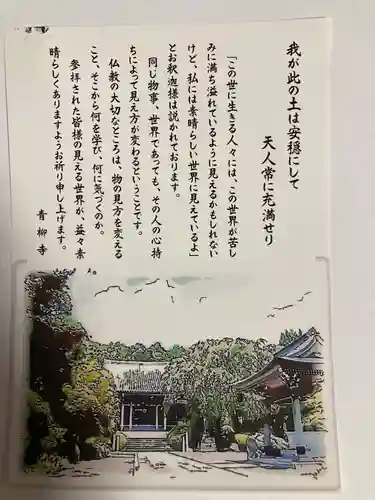 我が此の土は安穏にして
天人常に充満せり
「この世に生きる人々には、この世界が苦し
みに満ち溢れているように見えるかもしれない
けど、私には素晴らしい世界に見えているよ」
とお釈迦様は説かれております。
同じ物事、世界であっても、その人の心持
ちによって見え方が変わるということです。
仏教の大切なところは、物の見方を変える
こと、そこから何を学び、何に気づくのか。
参拝された皆様の見える世界が、益々素
晴らしくありますようお祈り申し上げます。
青柳寺